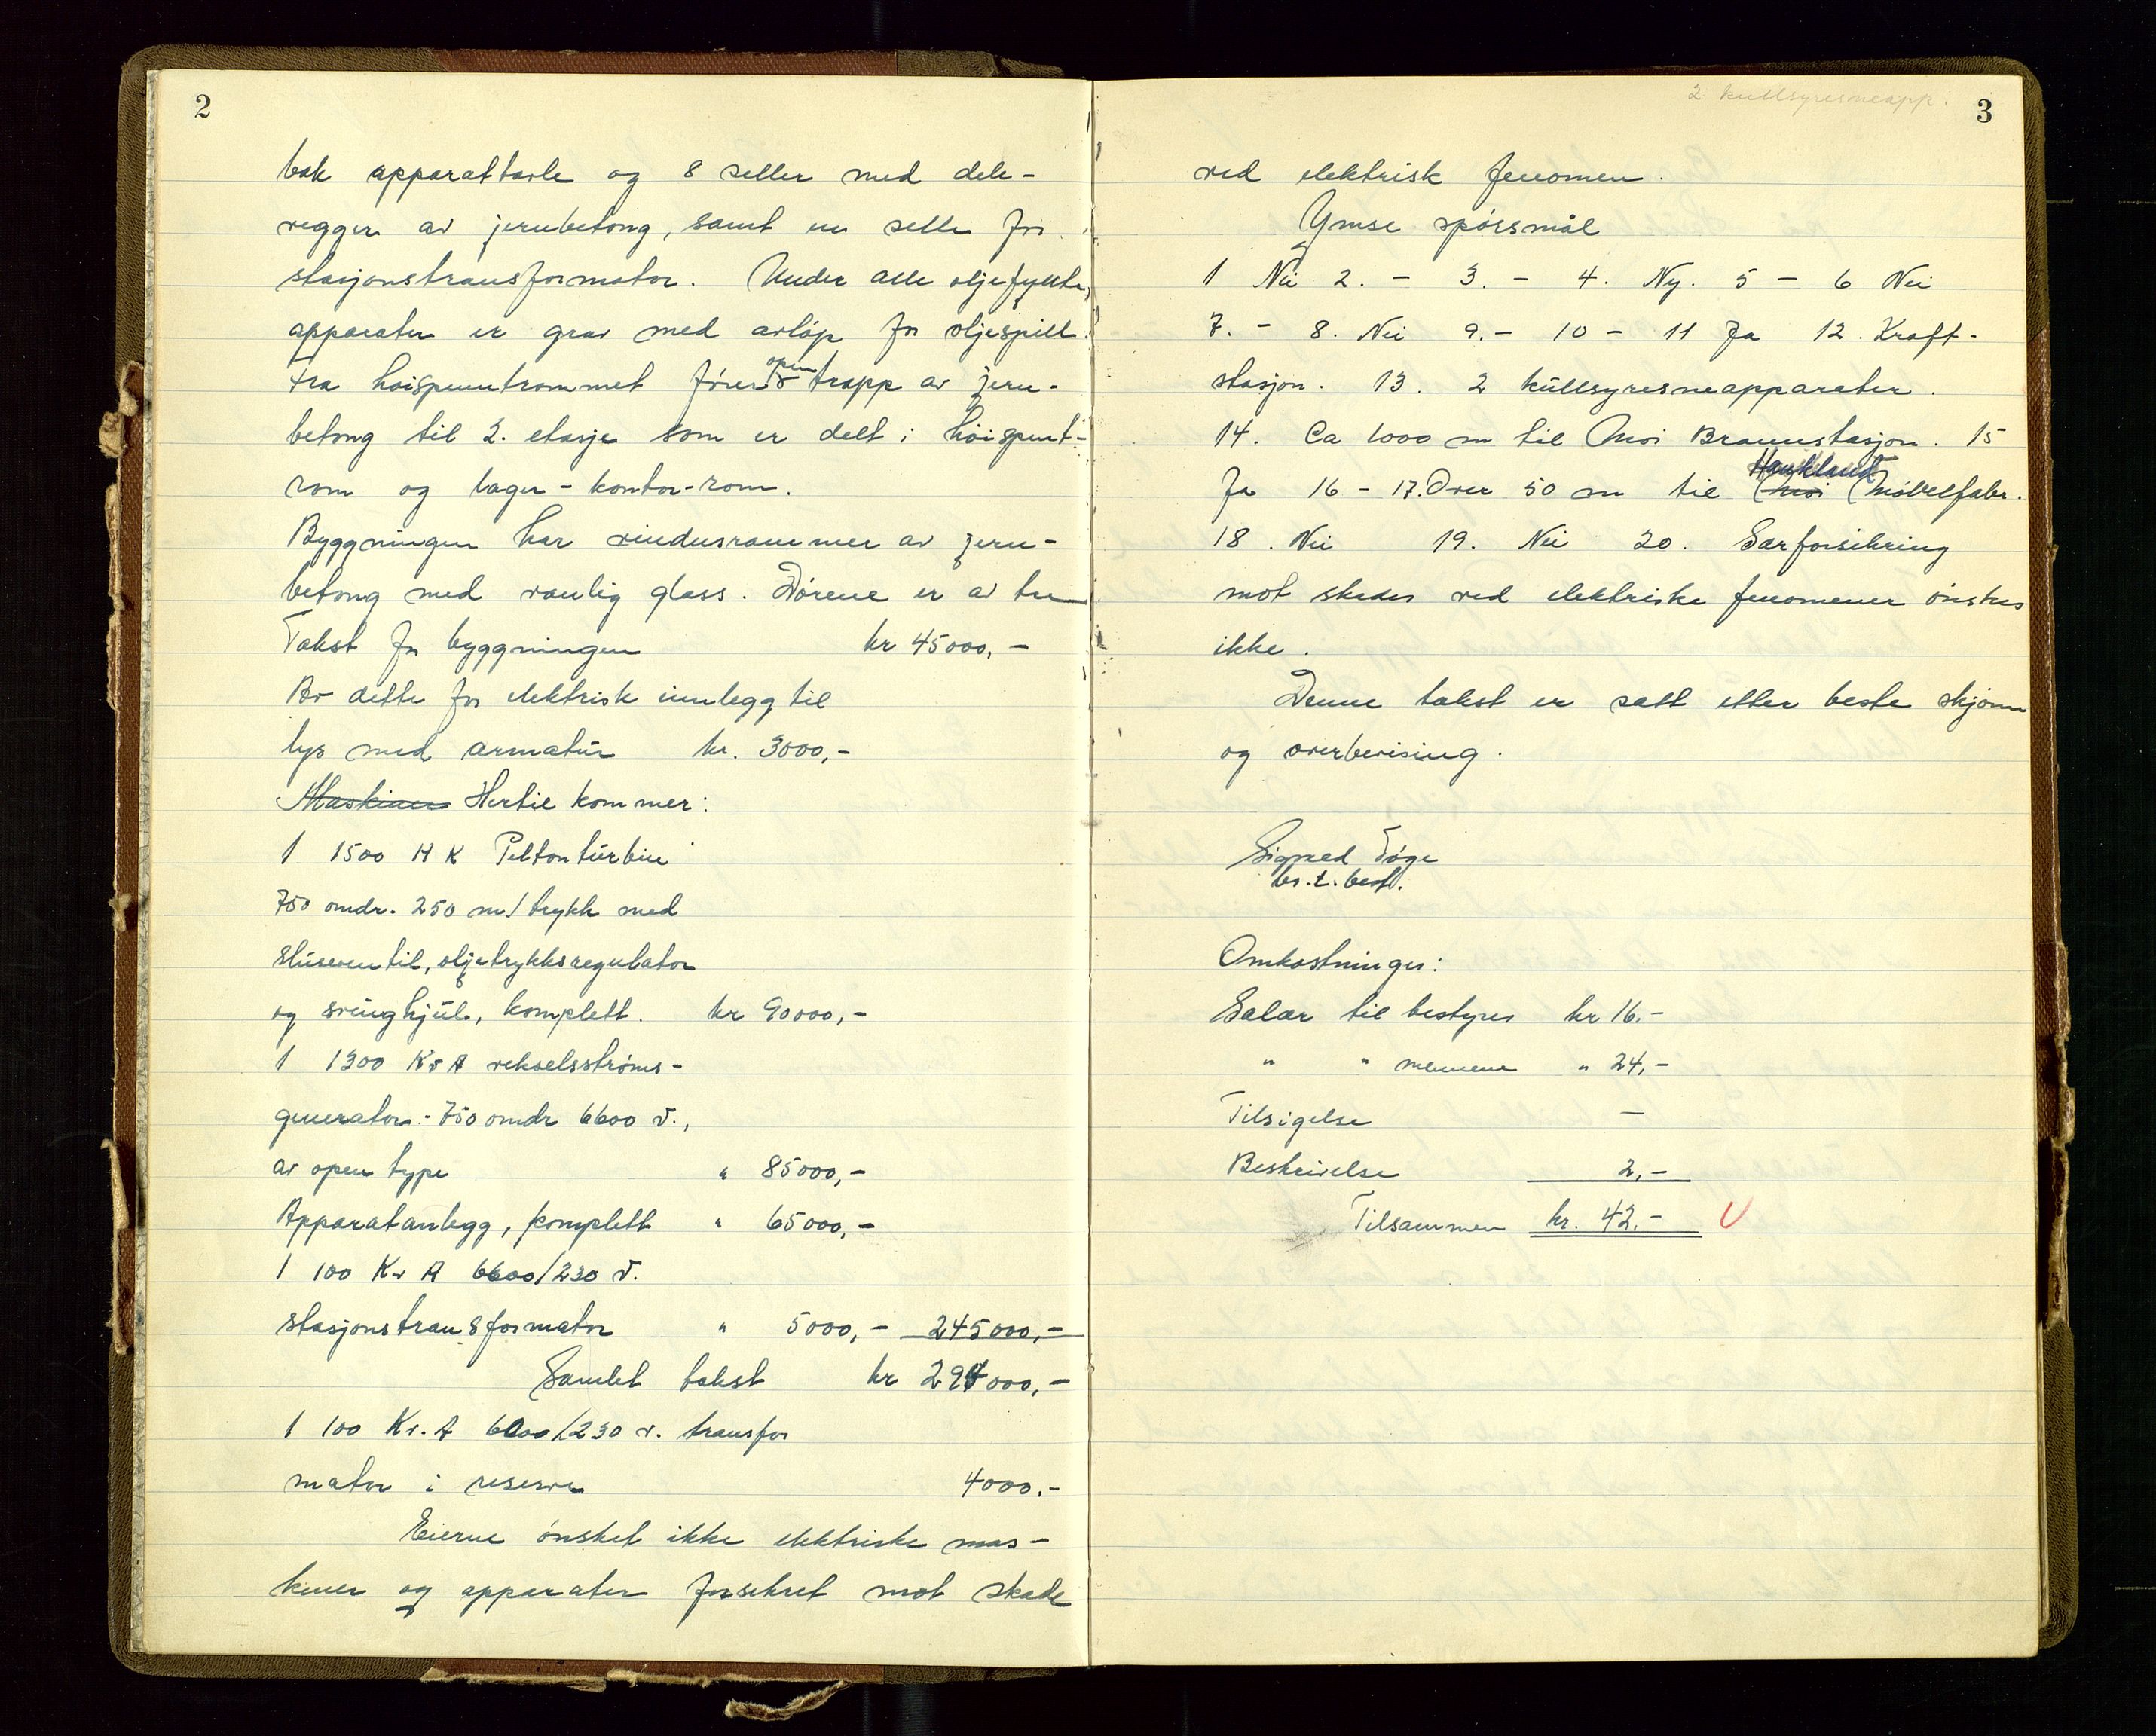 2
bak apparattavle og 8 seller med dele-
vegger av jernbetong, samt en selle for
stasjonstransformator. Under alle oljefyllte
apparater er grav med avløp for oljespill.
Fra høispenntrommet fører open trapp av jern-
betong til 2. etasje som er delt i høispent-
rom og lager-kontor-rom.
Byggningen har vindusrammer av jern-
betong med vanlig glass. Dørene er av tre
Takst for byggningen kr 45000,-
Av dette for elektrisk innlegg til
lys med armatur kr. 3000,-
Maskiner Hertil kommer:
1 1500 H K Peltonturbin
750 omdr. 250 m/trykk med
sluseventil, oljetrykksregulator
og svinghjul, komplett. kr 90000,-
1 1300 KvA vekselsstrøms-
generator - 750 omdr 6600 v.,
av open type " 85000,-
Apparatanlegg, komplett " 65000,-
1 100 KvA 6600/230 v.
stasjonstransformator " 5000,- 245000,-
Samlet takst kr 294000,-
1 100 Kv.A 6000/230 v. transfor
mator i reserve 4000.-
Eierne ønsket ikke elektriske mas-
kiner og apparater forsikret mot skade
2 kullsyresneapp.
3
ved elektrisk fenomen.
Ymse spørsmål
1 Nei 2. - 3. - 4. Ny. 5 - 6 Nei
7. - 8. Nei 9. - 10 - 11 Ja 12. Kraft-
stasjon. 13. 2 kullsyresneapparater.
14. Ca 1000 m til Moi Brannstasjon. 15
Ja 16 - 17. Over 50 m til Moi Haukland Møbelfabr.
18. Nei 19. Nei 20. Særforsikring
mot skader ved elektriske fenomener ønskes
ikke.
Denne takst er satt etter beste skjønn
og overbevising.
Sigved Tøge
br.t.best.
Omkostninger:
Salær til bestyrer kr 16.-
" " mennene " 24,-
Tilsigelse -
Beskrivelse 2,-
Tilsammen kr. 42.-